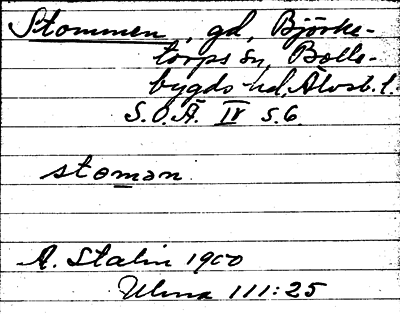 Stommen, gd, Björke-
torps sn, Bolle-
bygds hd, Älvsb. l.
S.O.Ä. IV s. 6.
stoman
A. Stalin 1900
Ulma 111:25